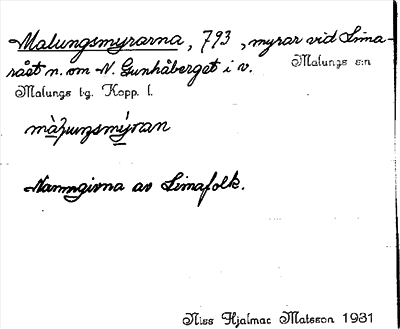 Malungsmyrarna, 793, myrar vid Lima-
rået n. om N. Gunhåberget i v.
Malungs s:n
Malungs tg. Kopp. l.
Namngivna av Limafolk.
Niss Hjalmar Matsson 1931